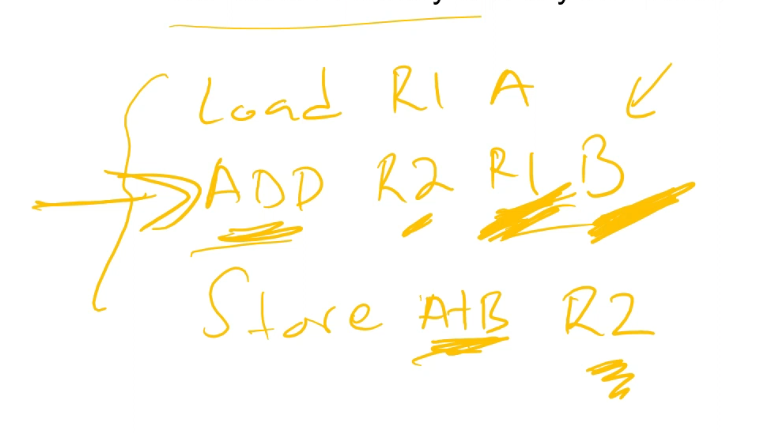 Load R1 A
ADD R2 R1 B
Store A+B R2